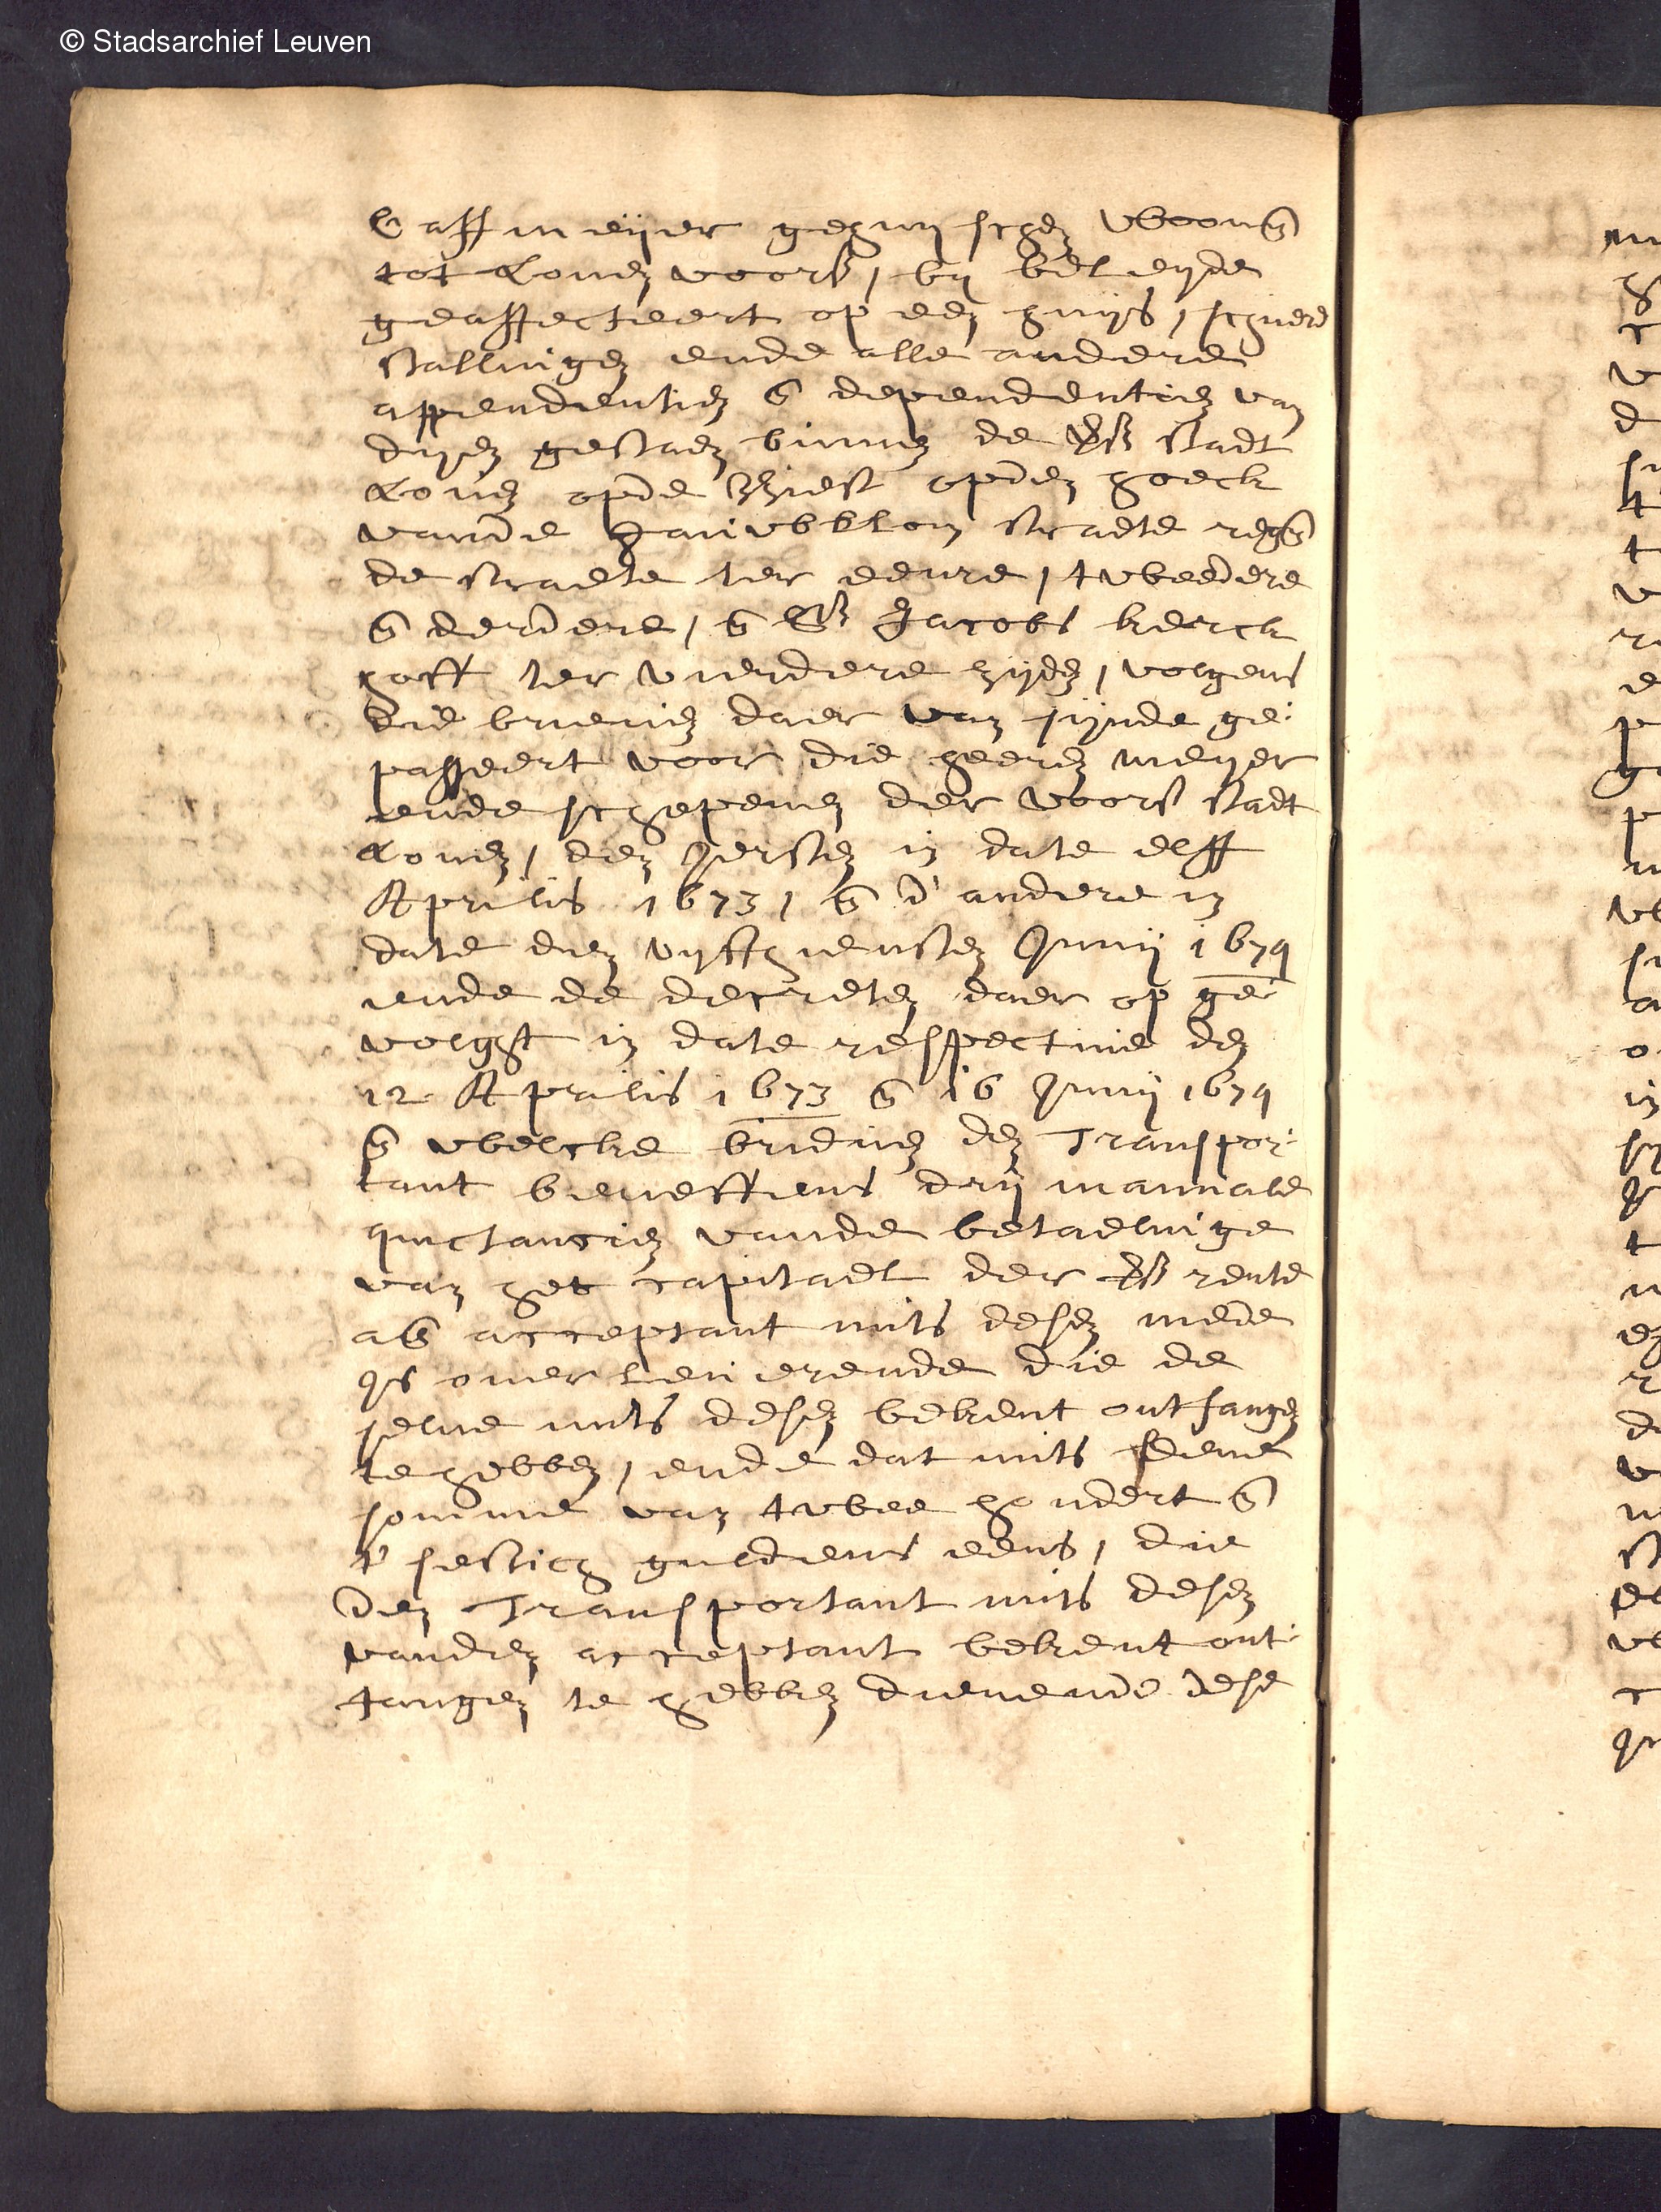 © Stadsarchief Leuven
gehuijschen woon(en)de
tot Loven voors, by beleyde
geaffecteert op een huijs, schuere
stallingen ende alle andere
appendentien en(de) dependentien van
dyen gestaen binnen de vs stadt
Loven opde Biest opden hoeck
vande straete reg(enoten)
de straete ter eenre, tweedere
en(de) derdere, en(de) St Jacobs kerck
hoff ter vierdere zijden, volgens
die brieven daer van sijnde ge:
passeert voor die heeren meyer
ende schepenen der voors stadt
Loven, den iersten in date elff
Aprilis 1673, en(de) d'andere in
date den vyfthiensten Junij 1679
ende de decreten daer op ge:
volght in date respective den
12 Aprilis 1673 en(de) 16 Junij 1679
en(de) welcke brieven den Transpor:
tant beneffens drij manuale
quictancien vande betaelinge
van het capitael der vs rente
acceptant mits desen mede
is overleverende die de
selve mits desen bekent ontfangen
te hebben, ende dat mits eene
somme van twee hondert en(de)
t'sestich guldens eens, die
den Transportant mits desen
vanden acceptant bekent ont:
fangen te hebben dienende dese